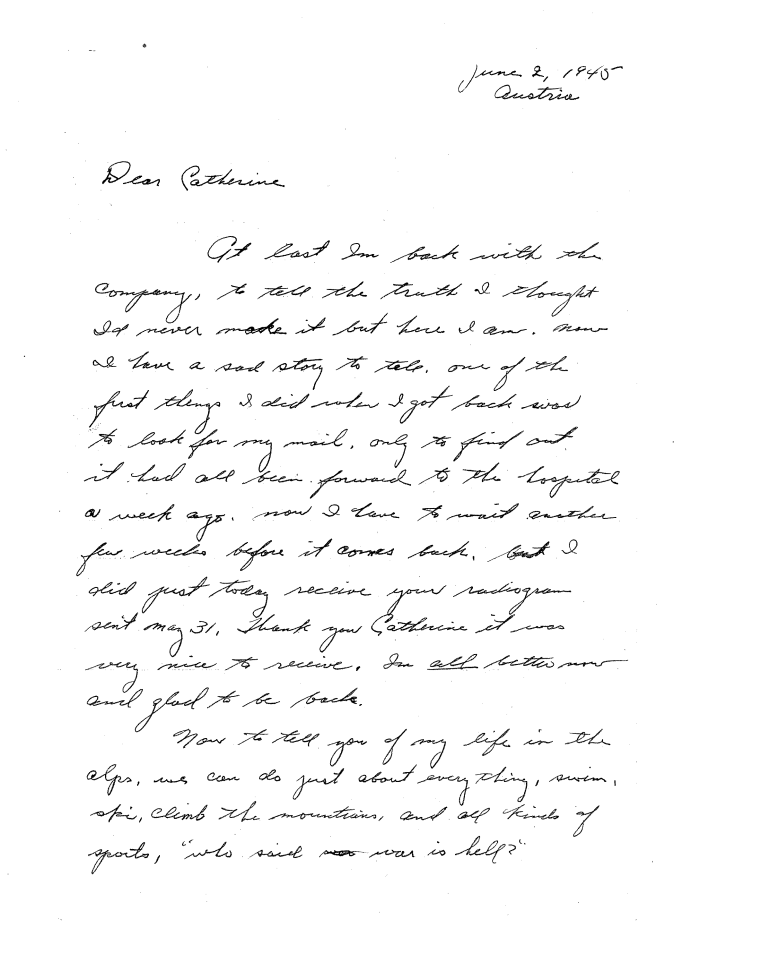 June 2, 1945
Austria
Dear Catherine
At last Im back with the
Company, to tell the truth I thought
Id never make it but here I am. now
I have a sad story to tell. one of the
first things I did when I got back was
to look for my mail, only to find out
it had all been forward to the hospital
a week ago. now I have to wait another
few weeks before it comes back. but I
did just today receive your radiogram
sent may 31, Thank you Catherine it was
very nice to receive. Im all better now
and glad to be back.
Now to tell you of my life in the
alps, we can do just about every thing, swim,
ski, climb the mountians, and all kinds of
sports, "who said war is hell?"